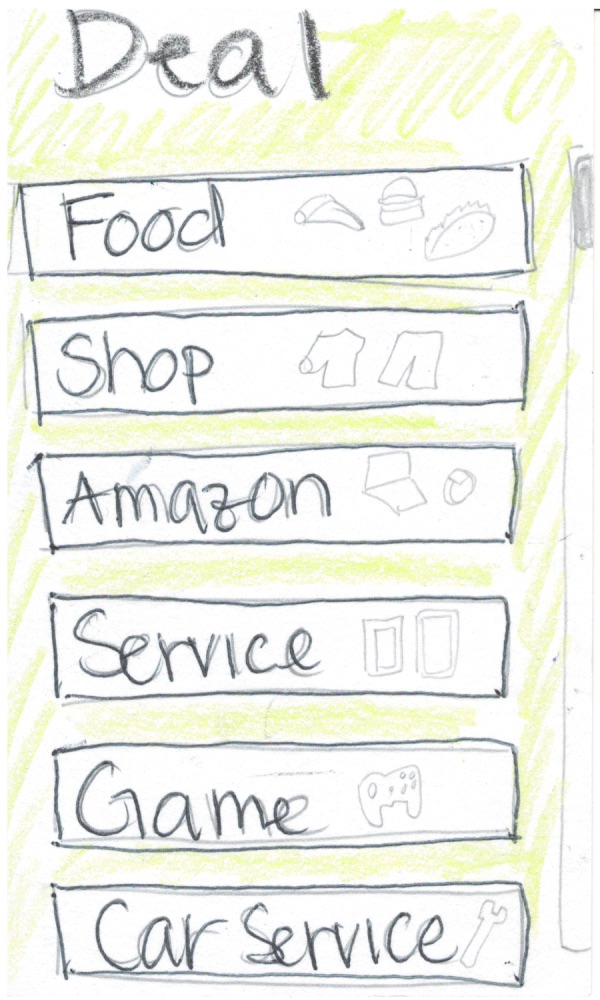 Deal
Food
Shop
Amazon
Service
Game
Car Service